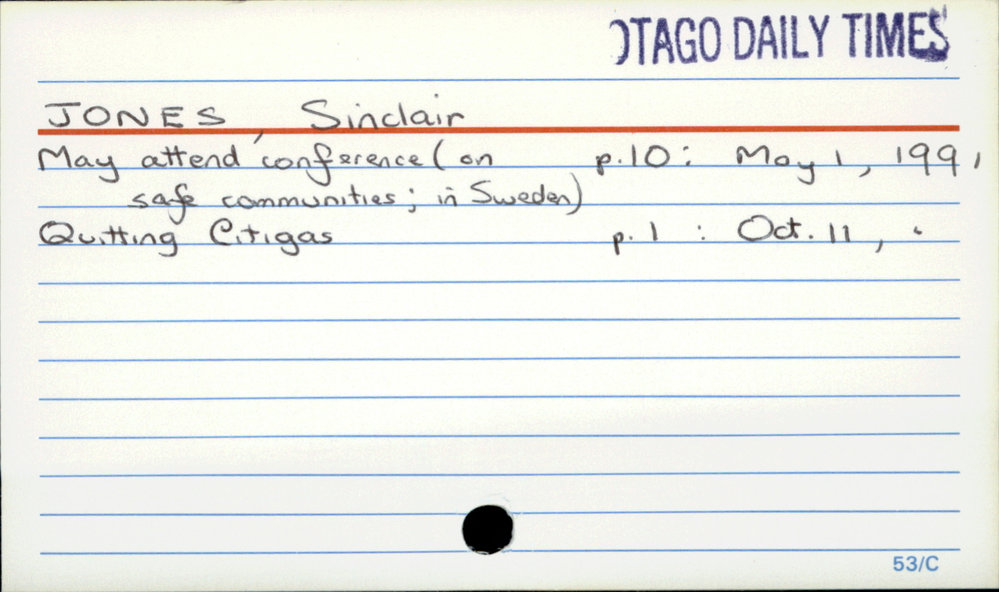 OTAGO DAILY TIMES
JONES, Sinclair
May attend conference (on p.10: May 1, 1991
safe communities; in Sweden)
Quitting Citigas p. 1 : Oct. 11, "
53/C